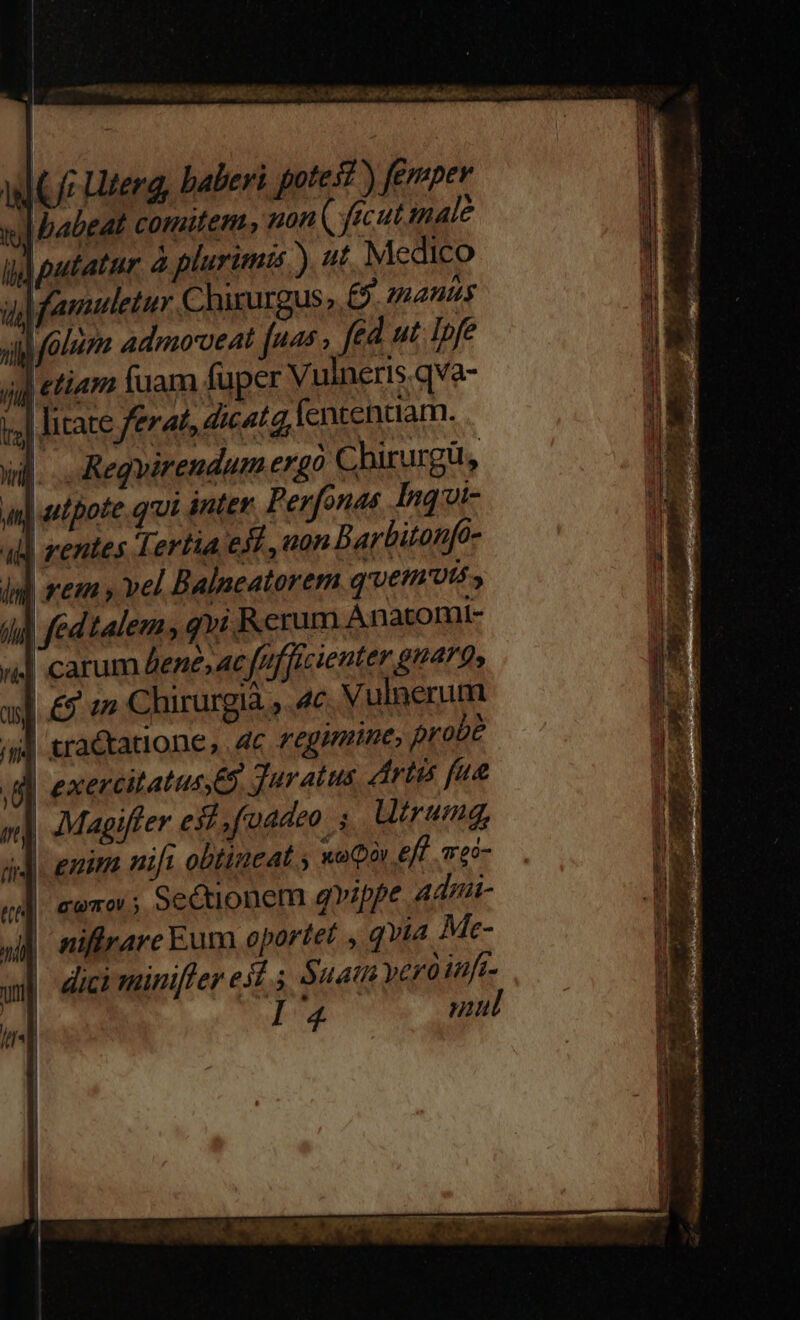 (ſi Uterq; haberi poteſt) ſemper
habeat comitem, non (ſicut malè
putatur à plurimis) ut Medico
famuletur Chirurgus, & manùs
ſolùm admoveat ſuas, ſed ut Ipſe
etiam ſuam ſuper Vulneris qva-
litate ferat, dicatq; ſententiam.
Reqvirendum ergò Chirurgũ,
utpote qvi inter Perſonas Inqvi-
rentes Tertia eſt, non Barbitonſo-
rem, vel Balneatorem qvemvis,
ſed talem, qvi Rerum Anatomi-
carum benè, ac ſufficienter gnarq,
& in Chirurgiâ, ac Vulnerum
tractatione, ac regimine, probè
exercitatus, & Juratus Artis ſuæ
Magiſter eſt, ſvadeo; Utrumq;
enim niſi obtineat, κωφὸν eſt πρό-
σωπον; Sectionem qvippe admi-
niſtrare Eum oportet, qvia Me-
dici miniſter eſt; Suam verò inſi-
I 4 mul